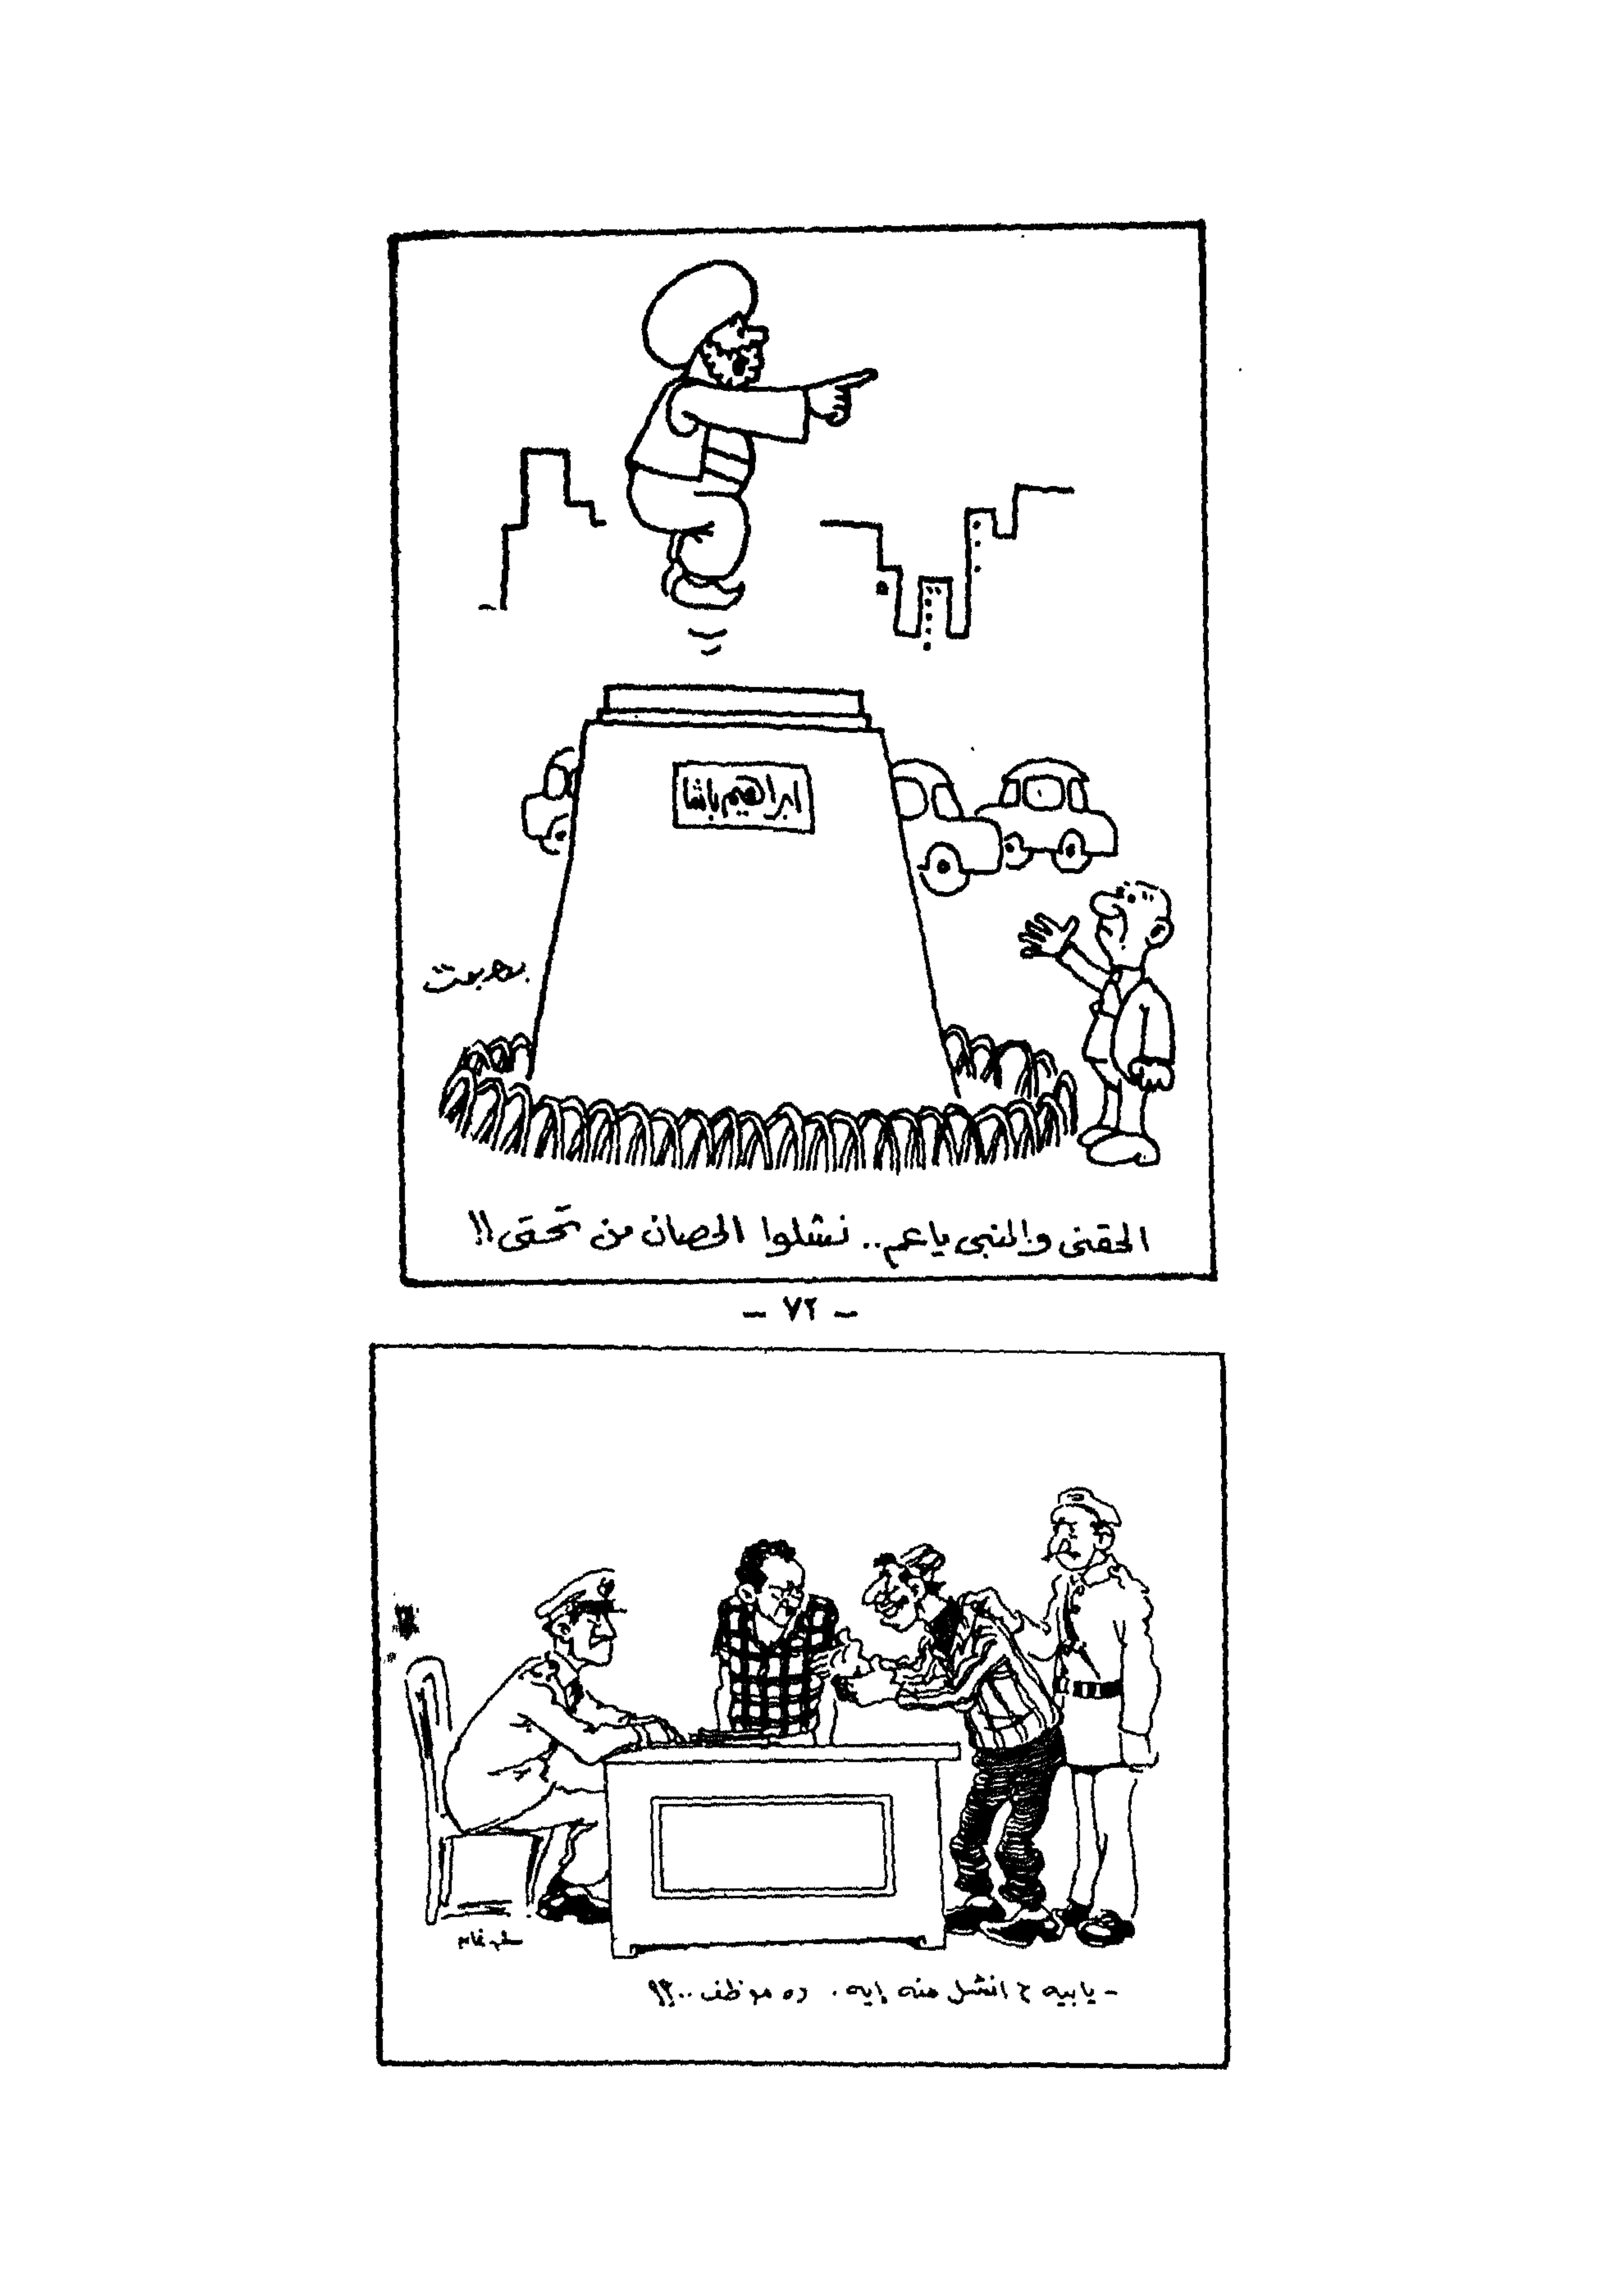 ابراهيم باشا
بهجت
الحقنى والنبى ياعم.. نشلوا الحصان من تحتى!!
- ٧٢ -
- يا بيه ح انشل منه إيه. ده موظف..؟!